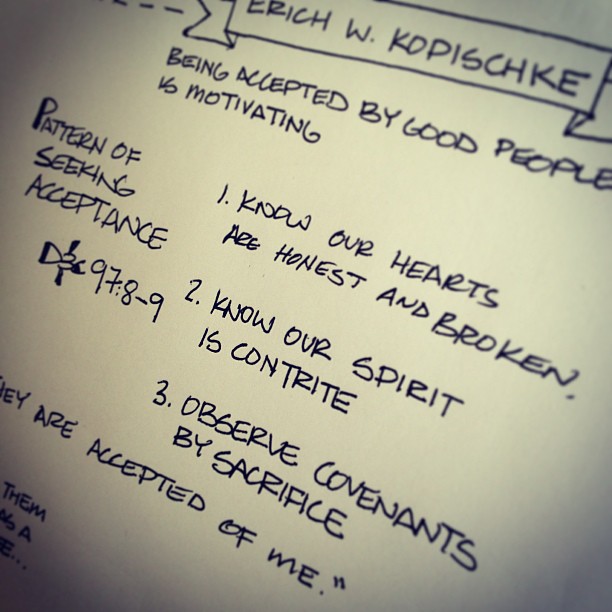 ERICH W. KOPISCHKE
BEING ACCEPTED BY GOOD PEOPLE
IS MOTIVATING
PATTERN OF
SEEKING
ACCEPTANCE
D&C 97:8-9
1. KNOW OUR HEARTS
ARE HONEST AND BROKEN.
2. KNOW OUR SPIRIT
IS CONTRITE
3. OBSERVE COVENANTS
BY SACRIFICE
HEY ARE ACCEPTED OF ME."
THEM
AS A
E...